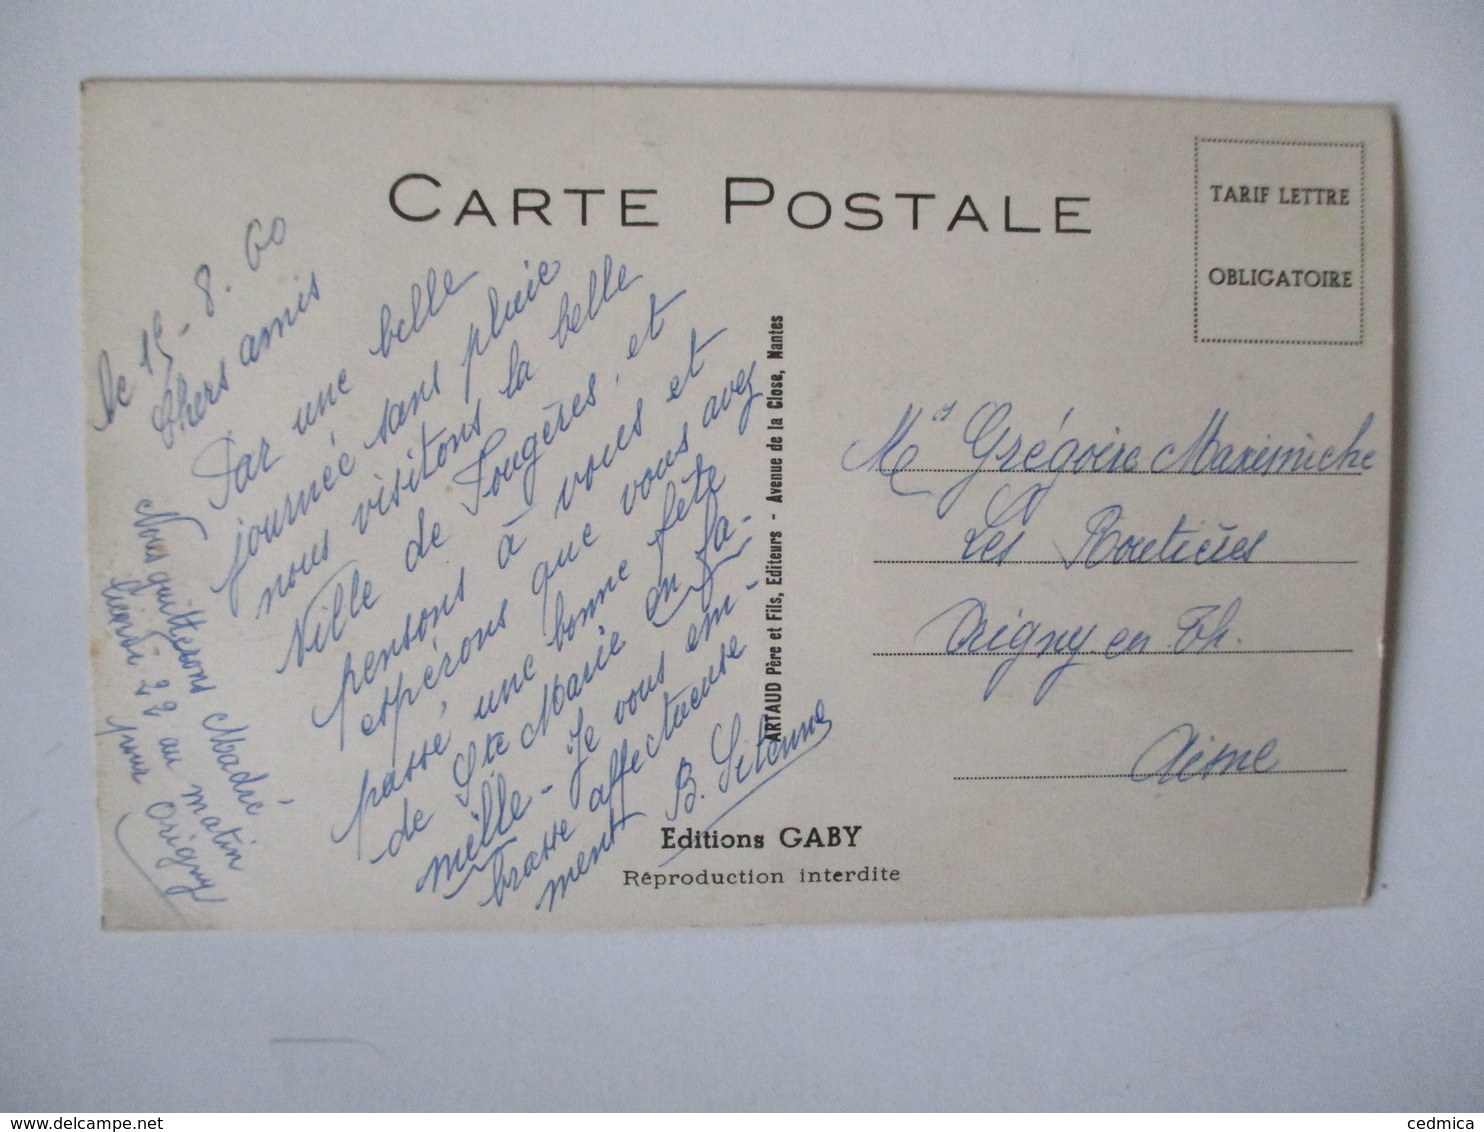 CARTE POSTALE
TARIF LETTRE
OBLIGATOIRE
le 19-8.60
Chers amis
Par une belle
journée sans pluie
nous visitons la belle
Ville de Fougères, et
pensons à vous et
espérons que vous avez
passé, une bonne fête
de Ste Marie en fa-
mille - Je vous em-
brasse affectueuse
ment B.
Nous quitterons Madré,
lundi 22 au matin
pour Origny
ARTAUD Père et Fils, Editeurs - Avenue de la Close, Nantes
Mes Grégoire
Les
Origny en Th.
Aisne
Editions GABY
Reproduction interdite
www.delcampe.net
cedmica